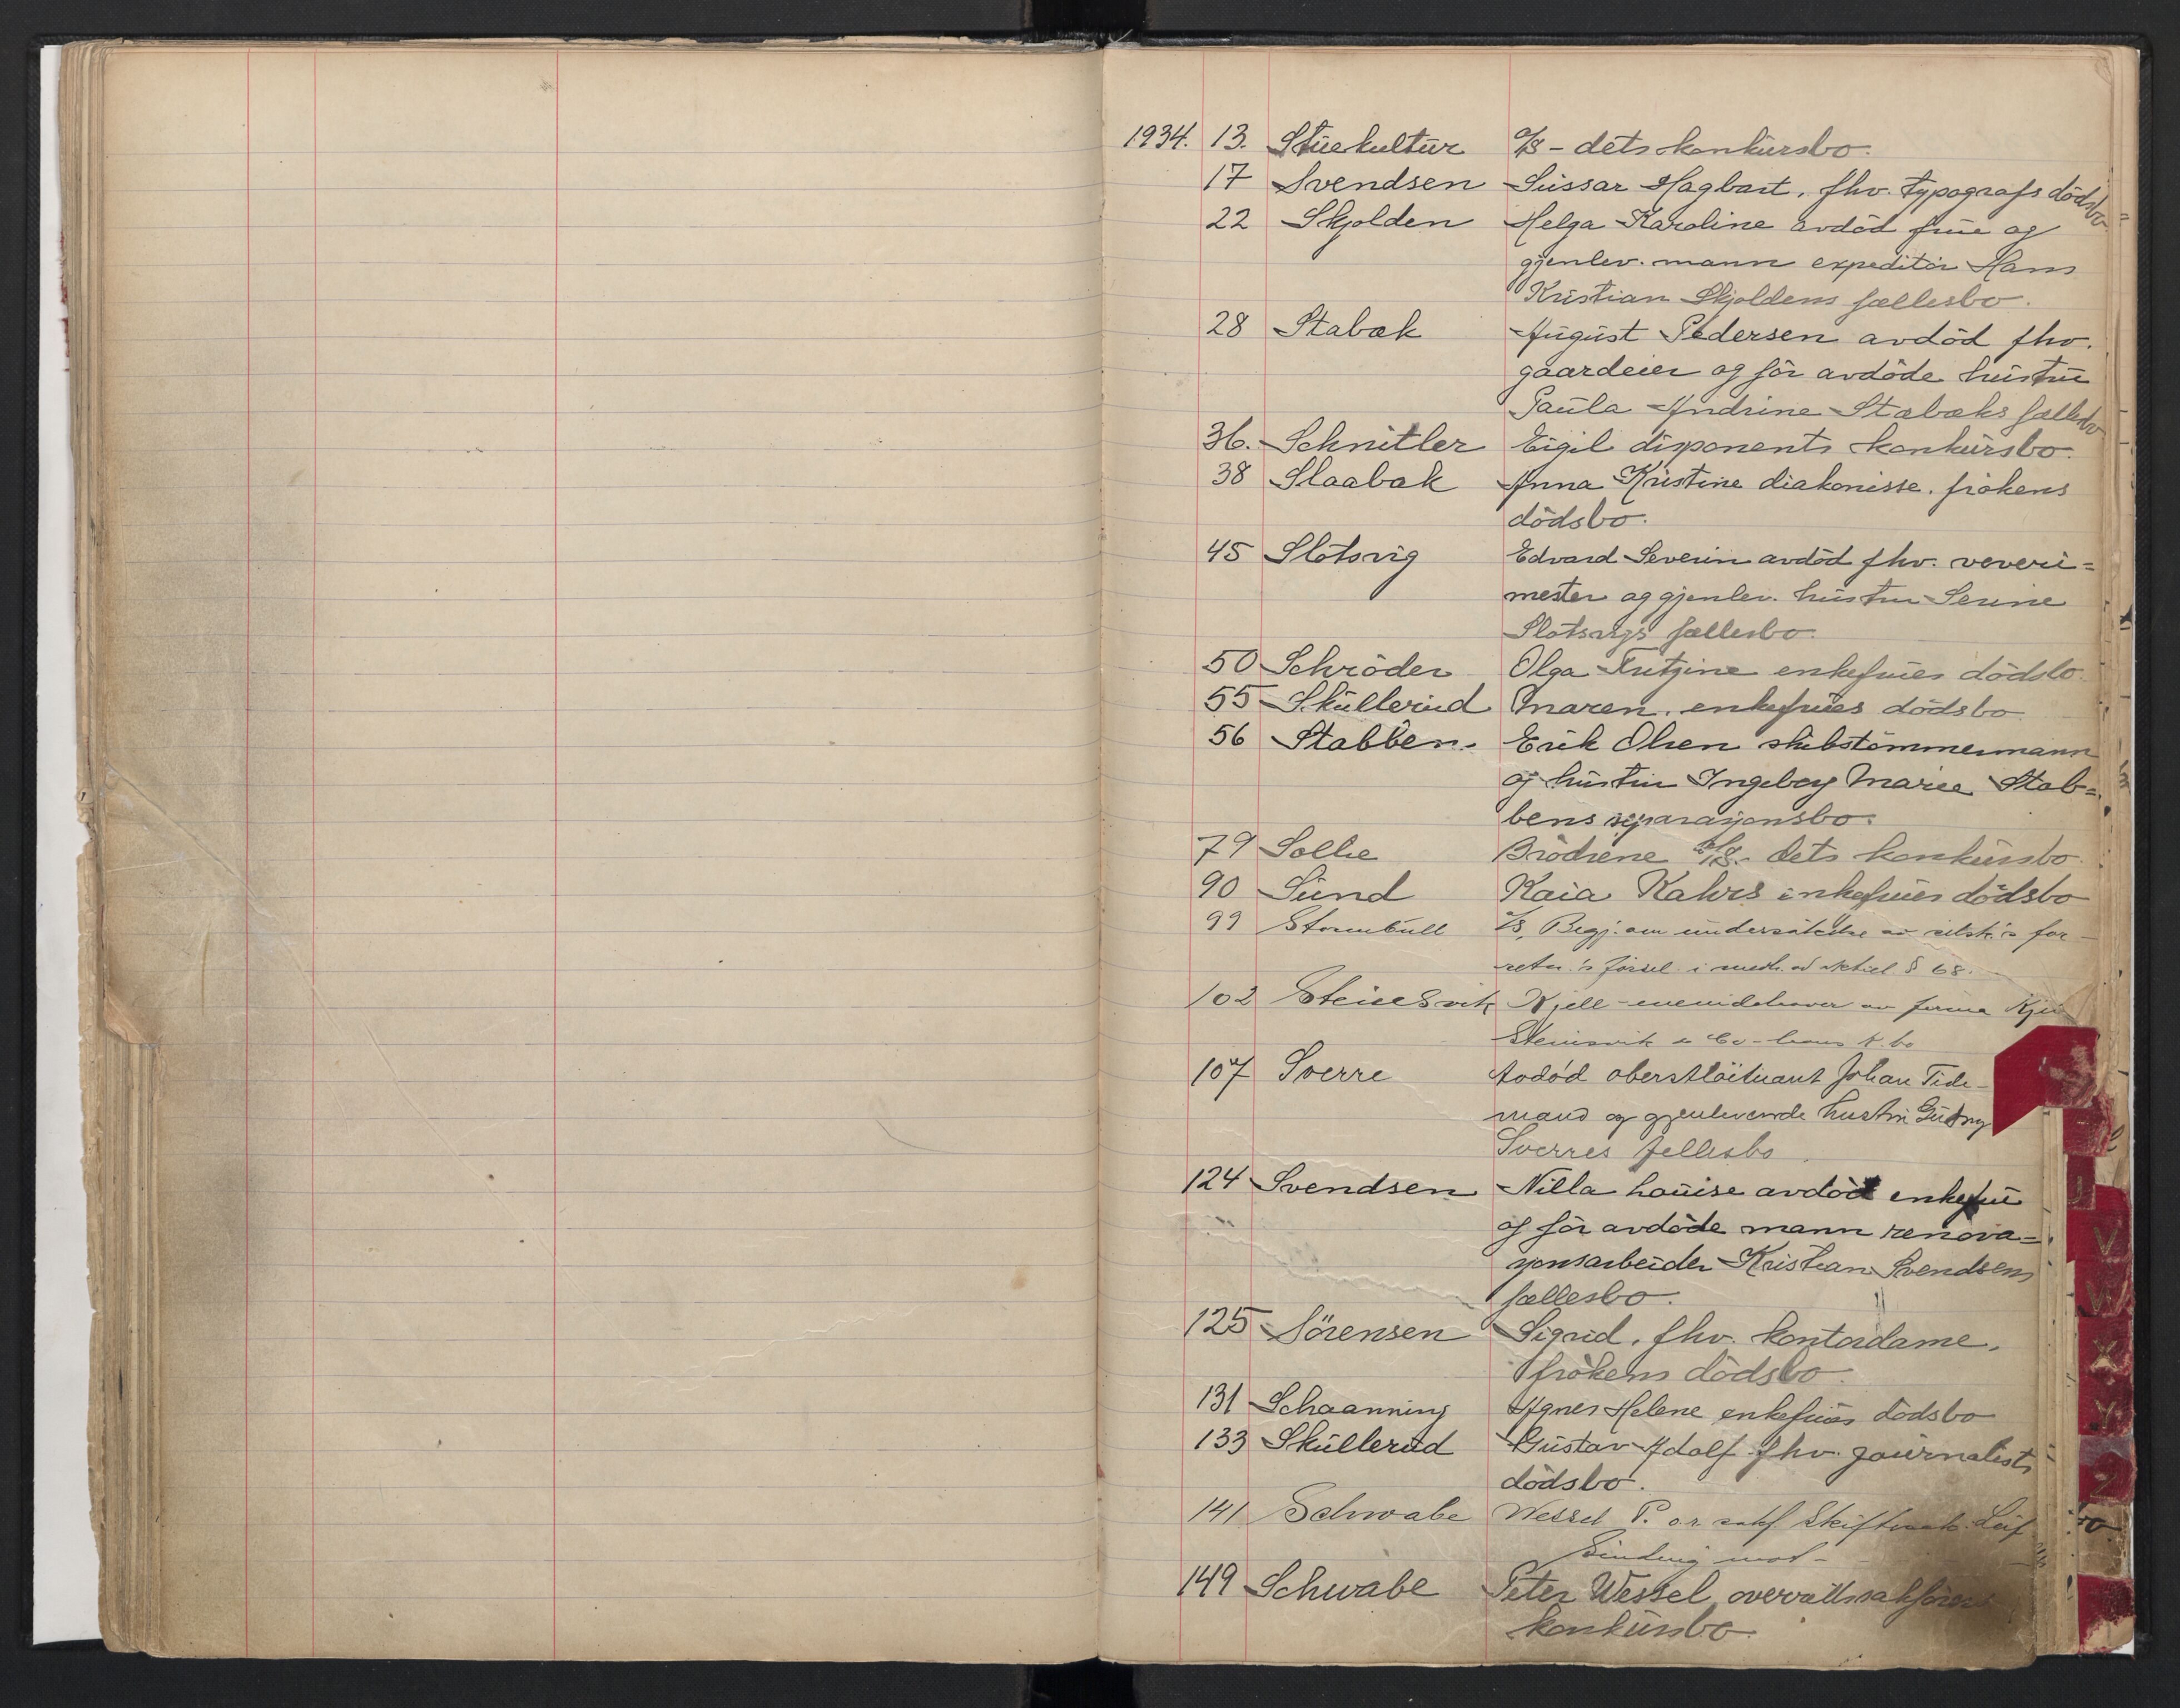 1934. 13. Stuekultur a/s - dets konkursbo.
17 Svendsen Sussar Hagbart, fhv. typografs dödsbo
22 Skjolden Helga Karoline avdöd frue og
gjenlev. mann expeditör Hans
Kristian Skjoldens fællesbo.
28 Stabæk August Pedersen avdöd fhv.
gaardeier og för avdöde hustru
Paula Andrine Stabæks fællesbo
36. Schnitler Eigil disponents konkursbo.
38 Slaabak Anna Kristine diakonisse, frökens
dödsbo.
45 Slotsvig Edvard Severin avdöd fhv. veveri=
mester og gjenlev. hustru Serine
Slotsvigs fællesbo.
50 Schröder Olga Frutzine enkefrues dödsbo.
55 Skullerud Maren, enkefrues dödsbo
56 Stabben. Erik Olsen skibstömmermann
og hustru Ingeborg Marie Stab=
bens separasjonsbo.
79 Sollie Brödrene a/s. dets konkursbo
90 Sund Kaia Kahrs enkefrues dödsbo
99 Stormbull a/s, Begj. om undersökelse av selsk's for-
retn.'s försel i medh. av aktiel § 68.
102 Steinsvik Kjell - eneindehaver av firma Kjell
Steinsvik & Co - hans k.bo
107 Sverre Avdöd oberstlöitnant Johan Tide-
mand og gjenlevende hustru Gudny
Sverres fellesbo.
124 Svendsen Nilla Louise avdöd enkefrue
og för avdöde mann renova=
sjonsarbeider Kristian Svendsens
fællesbo.
125 Sörensen Sigrid, fhv. kontordame,
frökens dödsbo.
131 Schaanning Agnes Helene enkefrues dödsbo
133 Skullerud Gustav Adolf fhv. journalists
dödsbo.
141 Schwabe Wessel P. o.r. sakf. Leif
Sinding mot -
149 Schwabe Peter Wessel, overrettssakförers
konkursbo.
V
W
X
Y